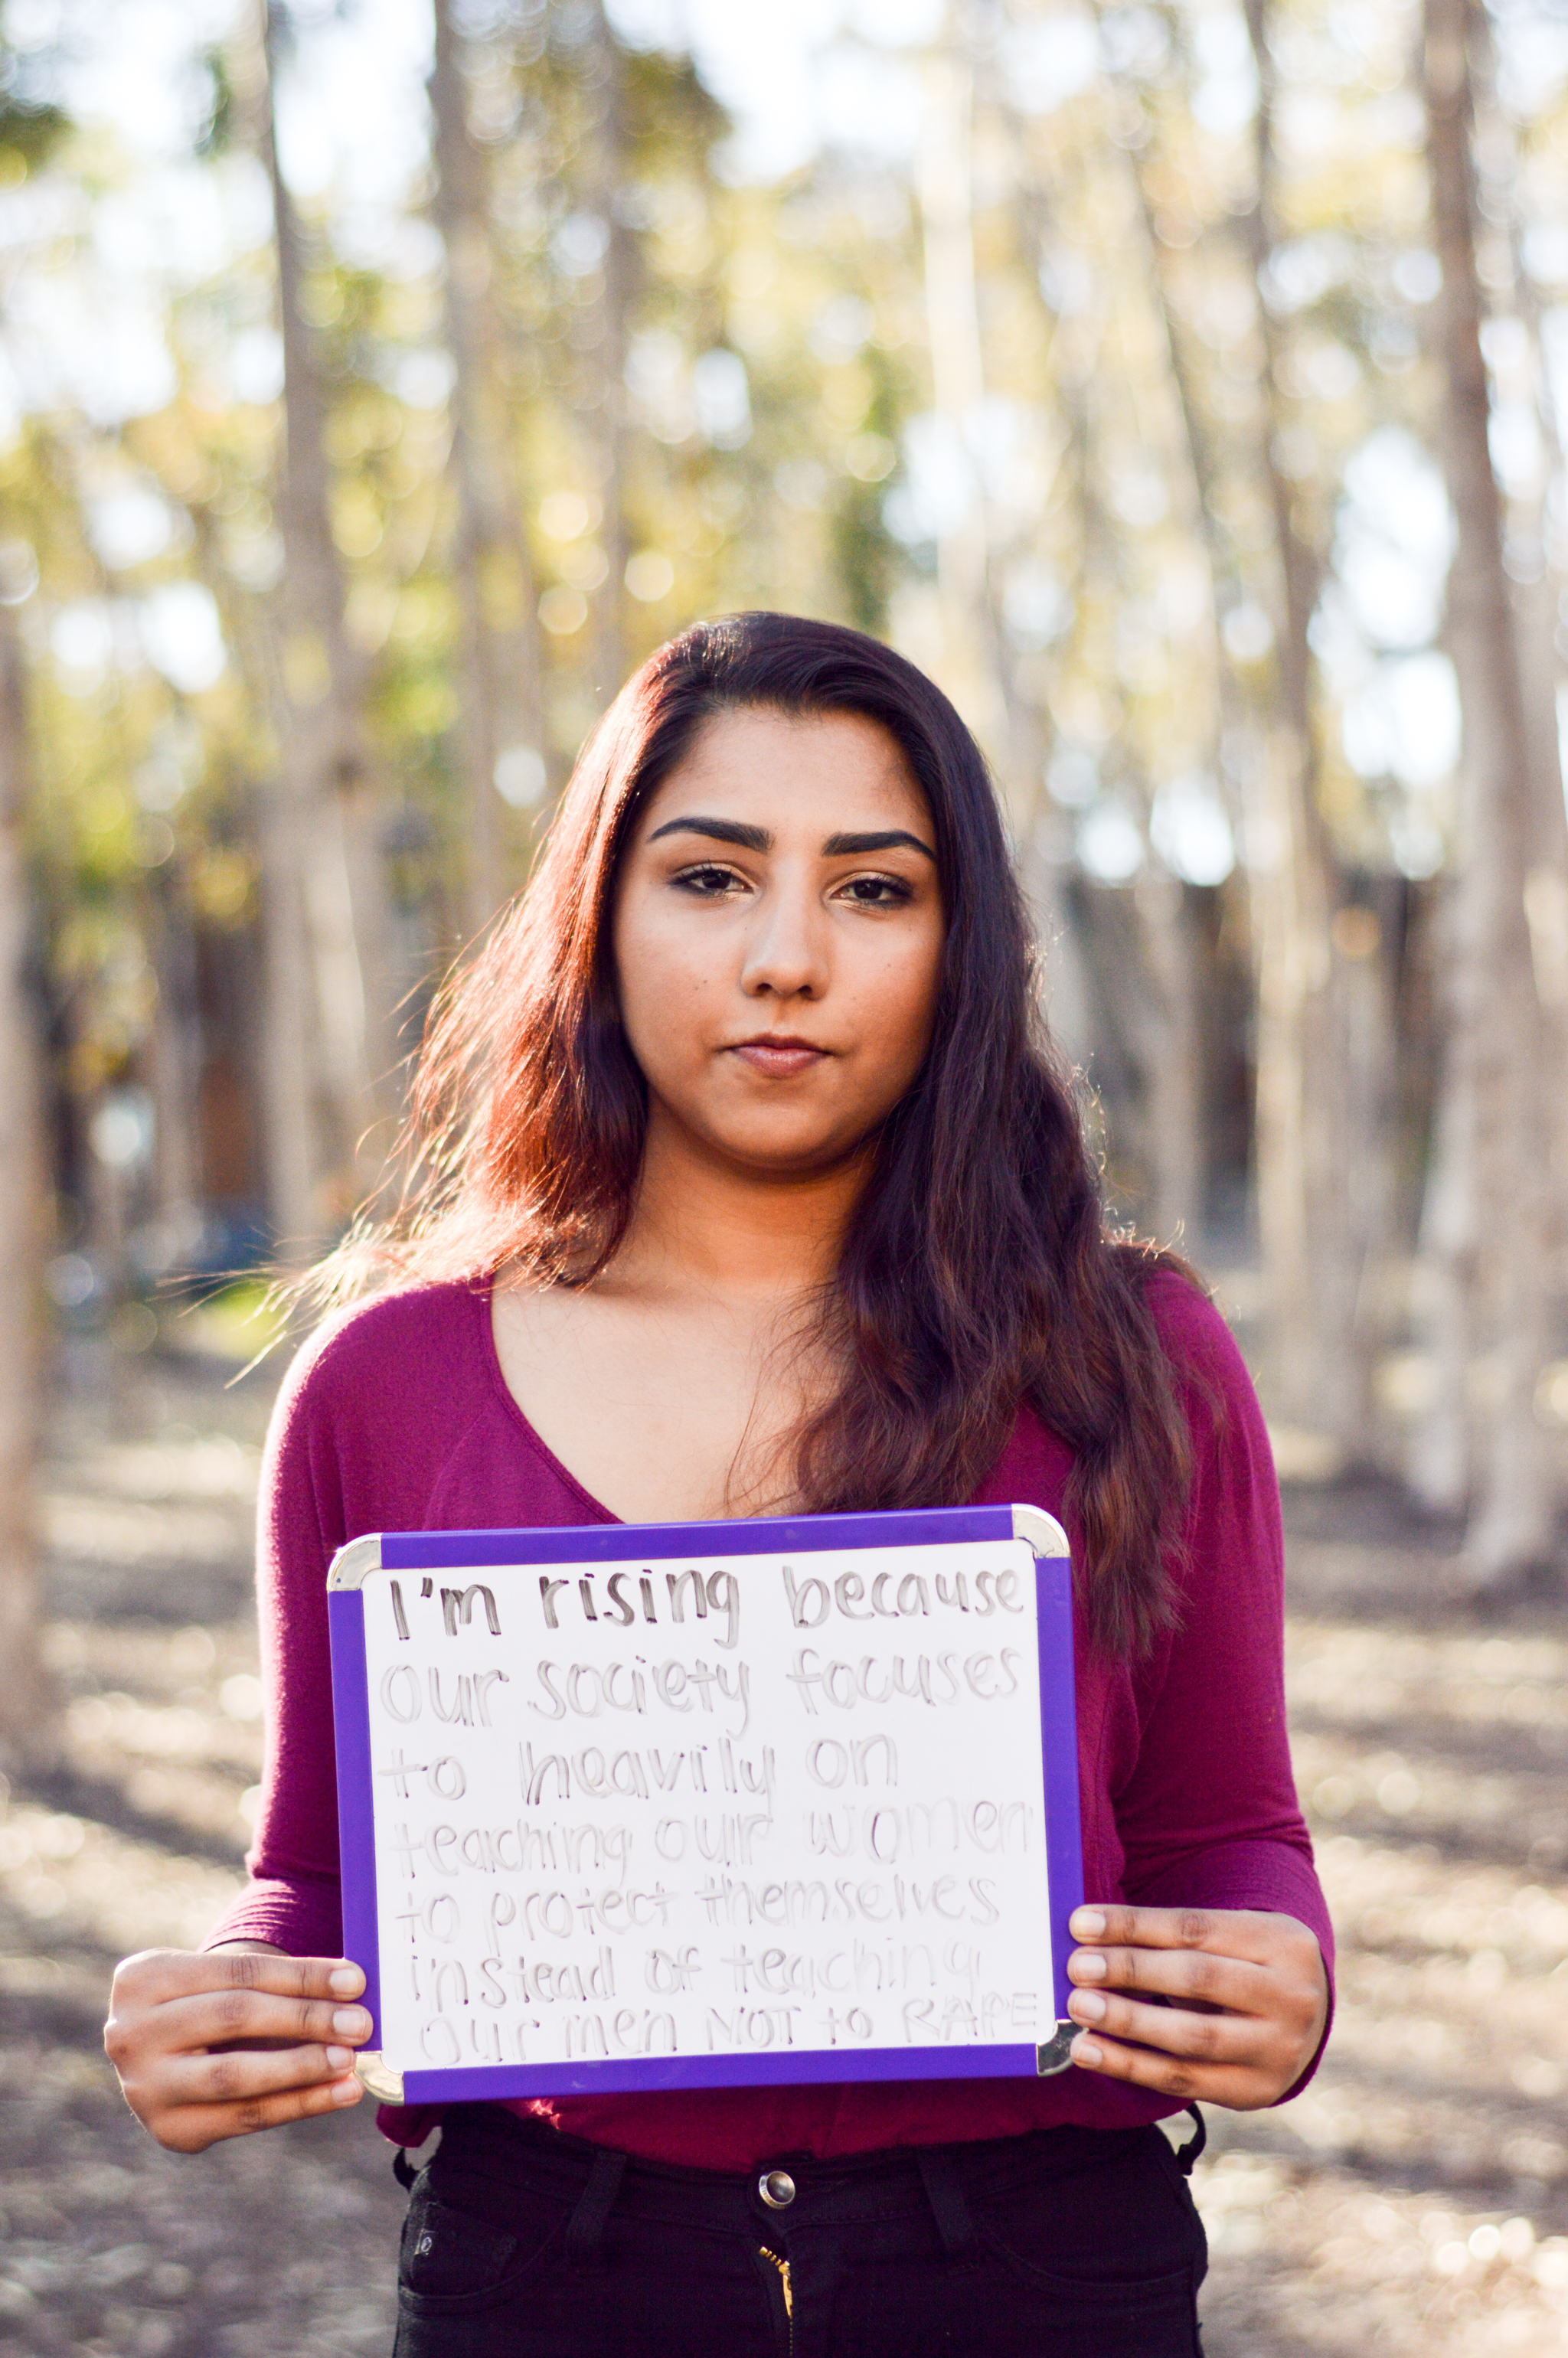 I'm rising because
our society focuses
to heavily on
teaching our women
to protect themselves
instead of teaching
our men NOT to RAPE